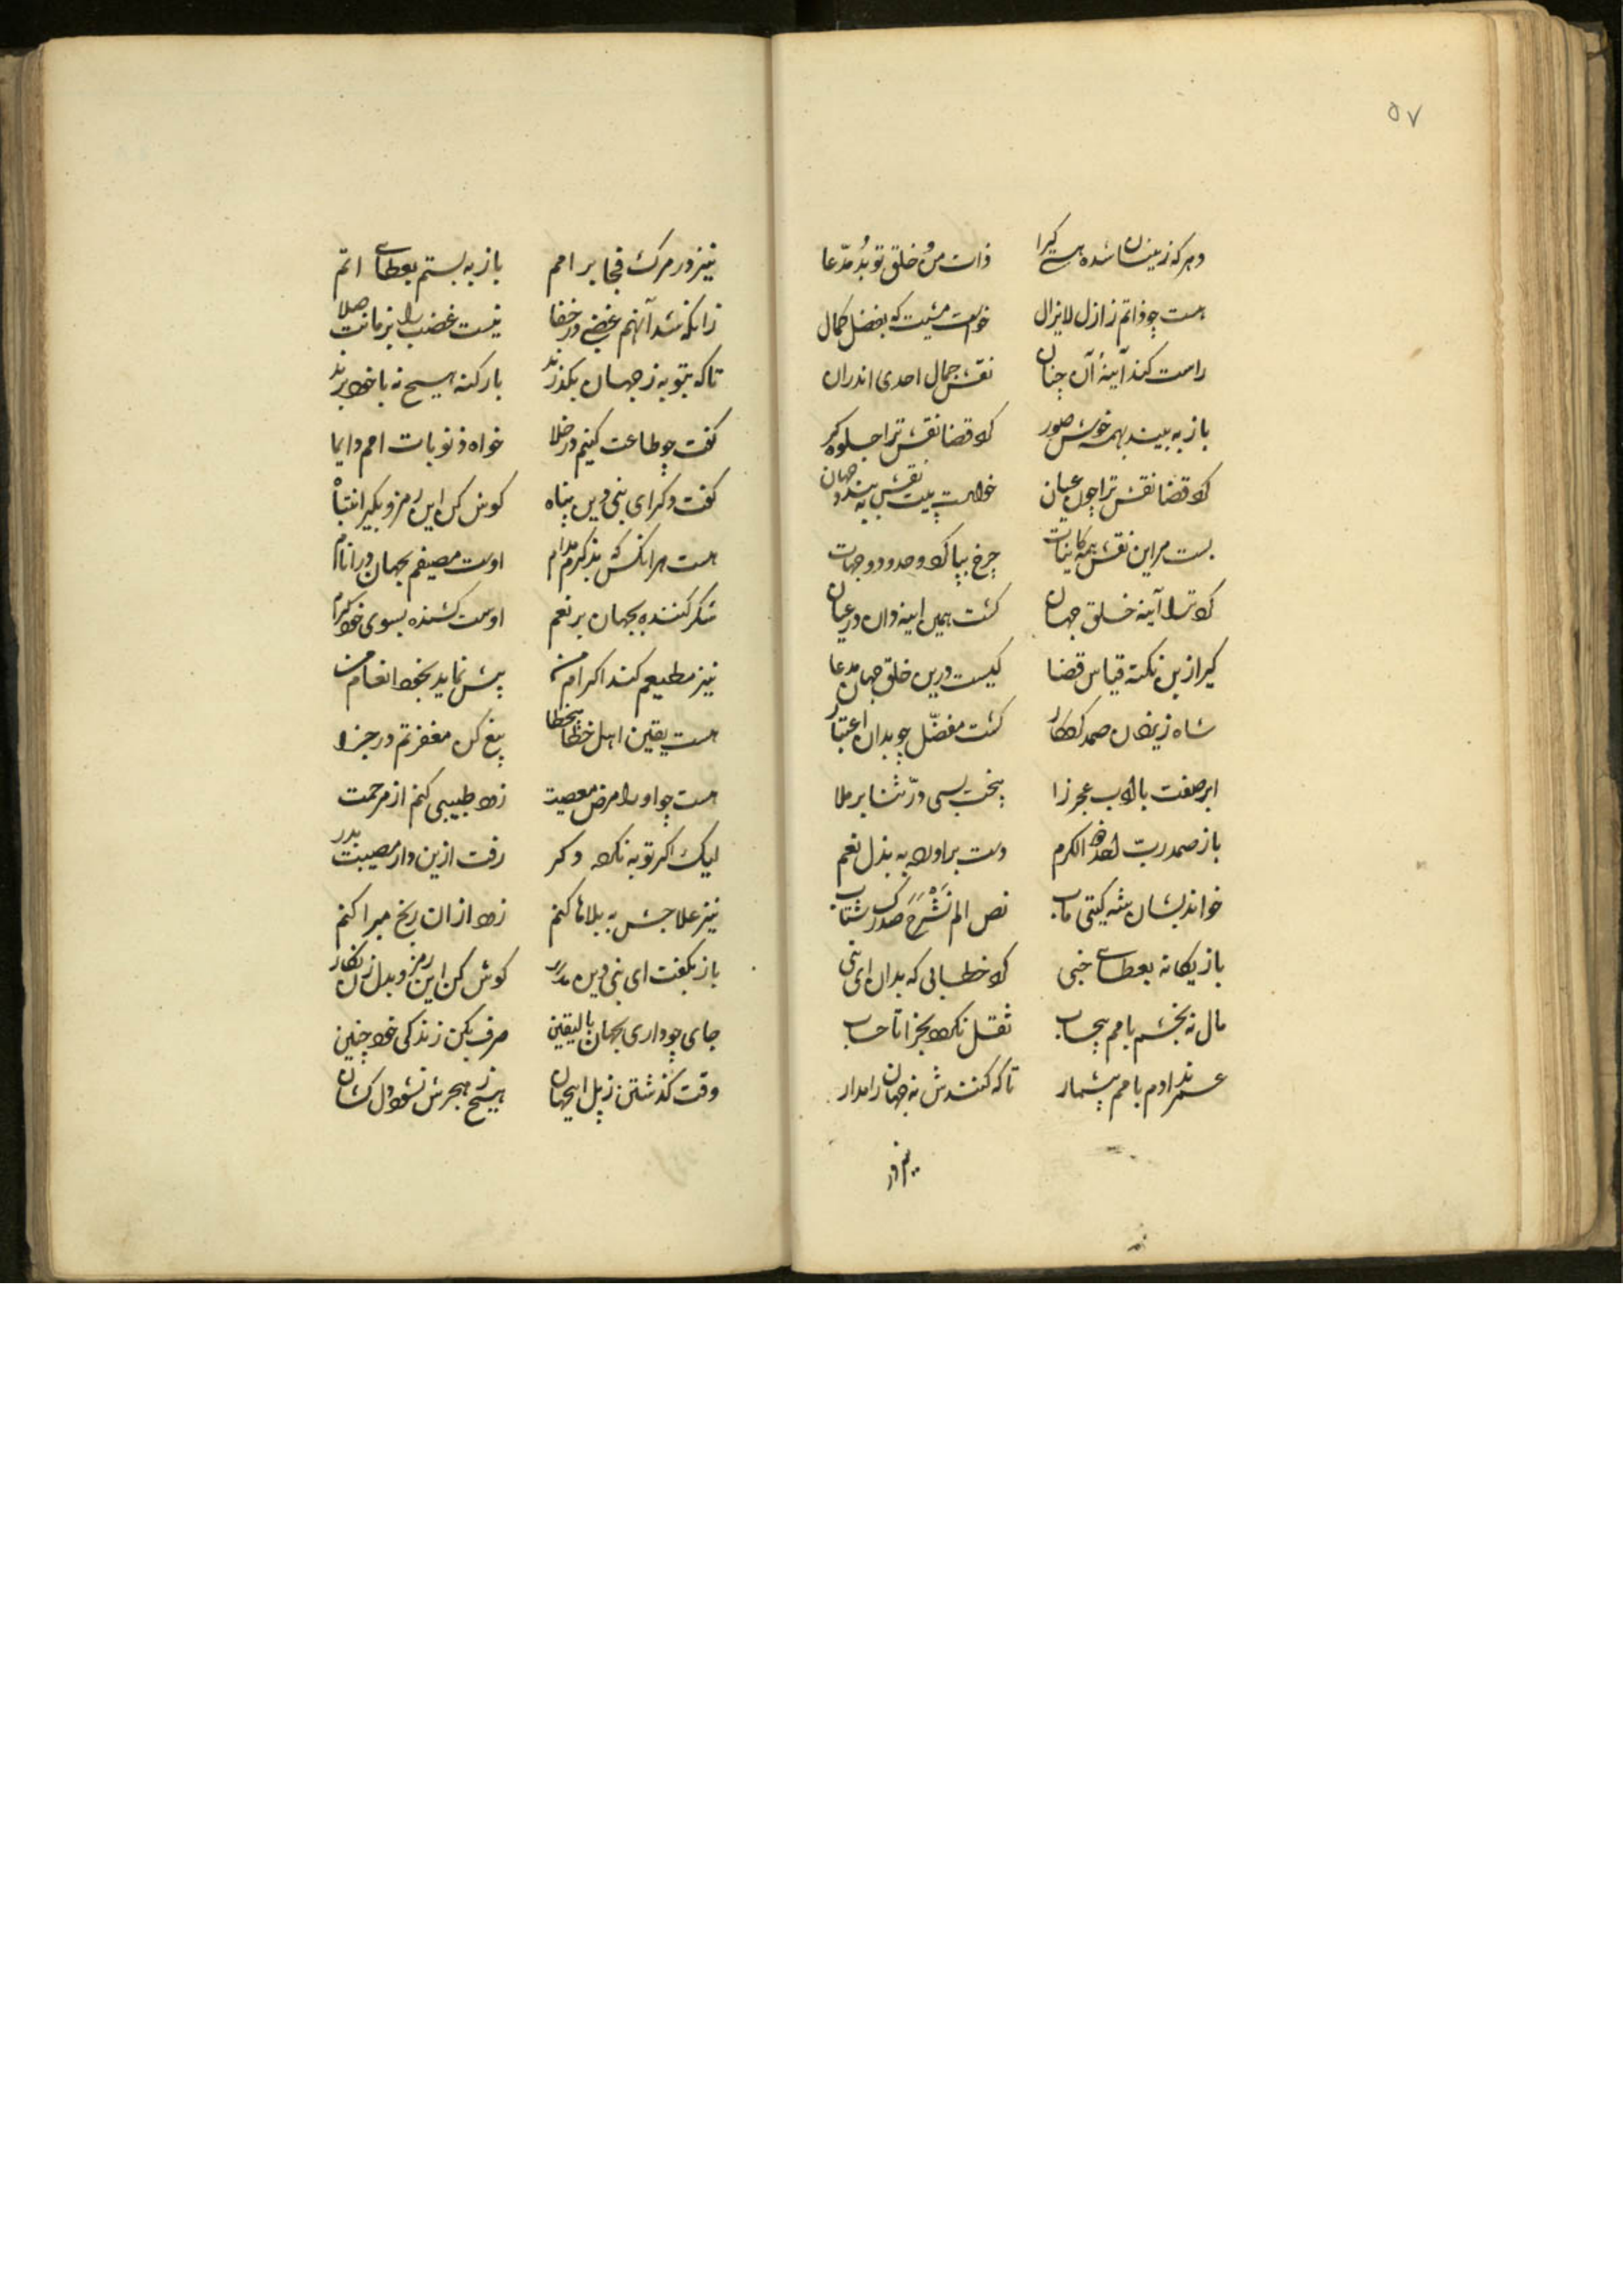 ۵۷
دهر که زینسان شده هستی گیرا ذات من و خلق تو بد مدّعا
هست چو ذاتم ز ازل لایزال خواست مشیت که بفضل کمال
راست کند آینهٔ آن چنان نقش جمال احدی اندران
باز به بیند بهمه خویش صور کرد قضا نقش ترا جلوه گر
کرد قضا نقش ترا چون عیان خواست پیت نقش به بندد جهان
بست مر این نقش همه کاینات چرخ بپا کرد و حدود و جهات
کرد ترا آینه خلق جهان گشت همین اینه دان در عیان
گیر ازین نکته قیاس قضا کیست درین خلق جهان مدعا
شاه زینسان صمد کردگار گشت مفضّل چو بدان اعتبار
ابر صفت با ادب عجز زا ریخت بسی درّ ثنا بر ملا
باز صمد ربّ الکرم دست براورد به بذل نعم
خواند بشان شه گیتی ماب نص الم نَشْرَحْ صدرک شتاب
باز یگانه بعطای خبی کرد خطابی که بدان ای نبی
مال نه بخشم بامم بیحساب ثقل نگردد بجزا تا حساب
عمر ندادم بامم بیشمار تا که کنندش نه جهان را مدار
نیز در
نیز در مرگ فجا بر امم باز به بستم بعطای اتم
زانکه شد آنهم غضبی در خفا نیست غضب را بزمانت صلا
تا که بتوبه ز جهان بگذرند بار گنه هیچ نه با خود برند
گفت چو طاعت کنیم در خلا خواه ذنوبات امم دایما
گفت دگر ای نبی دین پناه گوش کن این رمز و بگیر انتباه
هست هر انکس که بذکرم مدام اوست مصیفم بجهان در انام
شکر کننده بجهان بر نعم اوست کشنده بسوی خود کرم
نیز مطیعم کند اکرام من بیش نماید بخود انعام من
هست یقین اهل خطا بیخطا بیغ کن مغفرتم در جزا
هست چو او را مرض معصیت زود طبیبی کنم از مرحمت
لیک اگر توبه نکرد دگر رفت ازین دار مصیبت بدر
نیز علاجش به بلاها کنم زود ازان رنج مبرا کنم
باز بگفت ای نبی دین مدار گوش کن این رمز و بدل زان نگار
جای چو داری بجهان بالیقین صرف بکن زندگی خود چنین
وقت گذشتن ز پل اینجهان هیچ ز هجرش نشود دل کشان